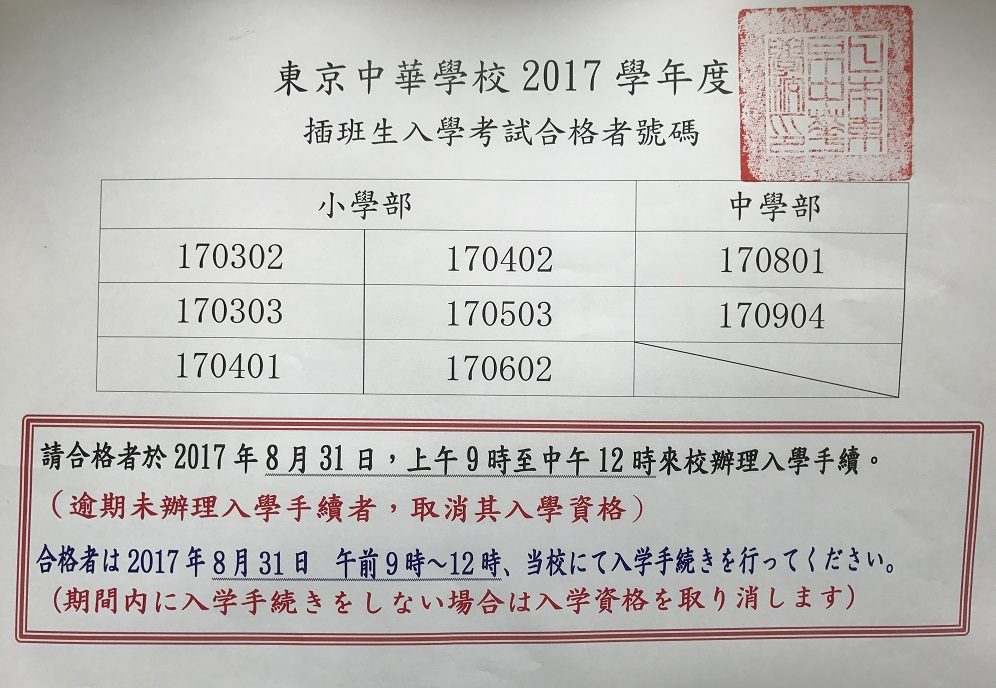 東京中華學校 2017 學年度
插班生入學考試合格者號碼
小學部 中學部
170302 170402 170801
170303 170503 170904
170401 170602
請合格者於 2017 年 8 月 31 日，上午 9 時至中午 12 時來校辦理入學手續。
（逾期未辦理入學手續者，取消其入學資格）
合格者は 2017 年 8 月 31 日　午前 9 時～12 時、当校にて入学手続きを行ってください。
（期間内に入学手続きをしない場合は入学資格を取り消します）